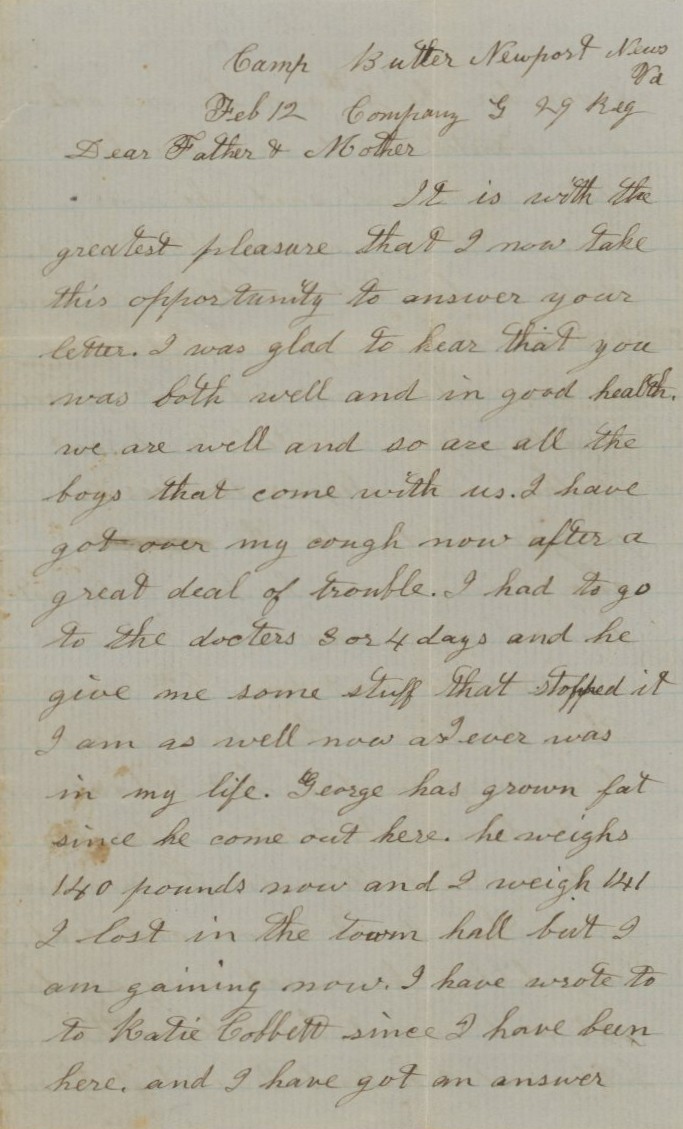 Camp Butler Newport News
Va
Feb 12 Company G 29 Reg
Dear Father & Mother
It is with the
greatest pleasure that I now take
this opportunity to answer your
letter. I was glad to hear that you
was both well and in good health.
we are well and so are all the
boys that come with us. I have
got over my cough now after a
great deal of trouble. I had to go
to the docters 3 or 4 days and he
give me some stuff that stopped it
I am as well now as I ever was
in my life. George has grown fat
since he come out here. he weighs
140 pounds now and I weigh 141
I lost in the town hall but I
am gaining now. I have wrote to
to Katie Cobbett since I have been
here. and I have got an answer